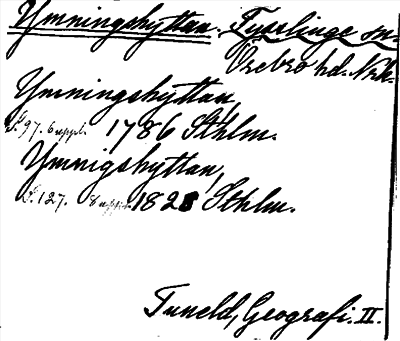 Ymningshyttan. Tysslinge sn.
Örebro hd. Nrk.
Ymningshyttan,
S. 97. 6 uppl. 1786 Sthlm.
Ymnigshyttan,
S. 127. 8 uppl. 1828 Sthlm.
Tuneld, Geografi. II.